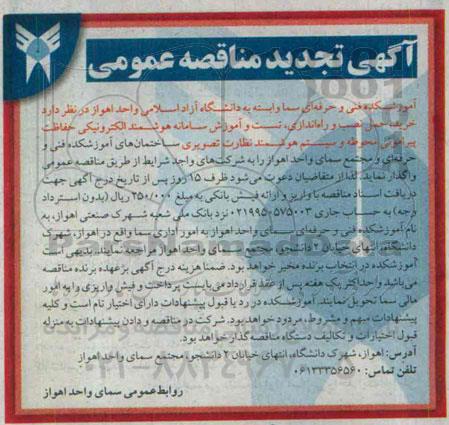 آگهی تجدید مناقصه عمومی
آموزشکده فنی و حرفه‌ای سما وابسته به دانشگاه آزاد اسلامی واحد اهواز در نظر دارد
خرید، حمل، نصب و راه‌اندازی، تست و آموزش سامانه هوشمند الکترونیکی حفاظت
پیرامونی محوطه و سیستم هوشمند نظارت تصویری ساختمان‌های آموزشکده فنی و
حرفه‌ای و مجتمع سمای واحد اهواز را به شرکت‌های واجد شرایط از طریق مناقصه عمومی
واگذار نماید. لذا از متقاضیان دعوت می‌شود ظرف ۱۵ روز پس از تاریخ درج آگهی جهت
دریافت اسناد مناقصه با واریز و ارائه فیش بانکی به مبلغ ۲۵۰/۰۰۰ ریال (بدون استرداد
وجه) به حساب جاری ۰۲۱۹۹۵۰۵۷۵۰۰۳ نزد بانک ملی شعبه شهرک صنعتی اهواز، به
نام آموزشکده فنی و حرفه‌ای سمای واحد اهواز به امور اداری سما واقع در اهواز، شهرک
دانشگاه، انتهای خیابان ۲ دانشجو، مجتمع سمای واحد اهواز مراجعه نمایند. بدیهی است
آموزشکده در انتخاب برنده مخیر خواهد بود. ضمنا هزینه درج آگهی بر عهده برنده مناقصه
می‌باشد و حداکثر یک هفته پس از عقد قرارداد می‌بایست پرداخت و فیش واریزی را به امور
مالی سما تحویل نمایند. آموزشکده در رد یا قبول پیشنهادات دارای اختیار تام است و کلیه
پیشنهادات مبهم و مشروط، مردود خواهد بود. شرکت در مناقصه و دادن پیشنهادات به منزله
قبول اختیارات و تکالیف دستگاه مناقصه گذار خواهد بود.
آدرس: اهواز، شهرک دانشگاه، انتهای خیابان ۲ دانشجو، مجتمع سمای واحد اهواز
تلفن تماس: ۰۶۱۳۳۳۵۶۵۶۰
روابط عمومی سمای واحد اهواز